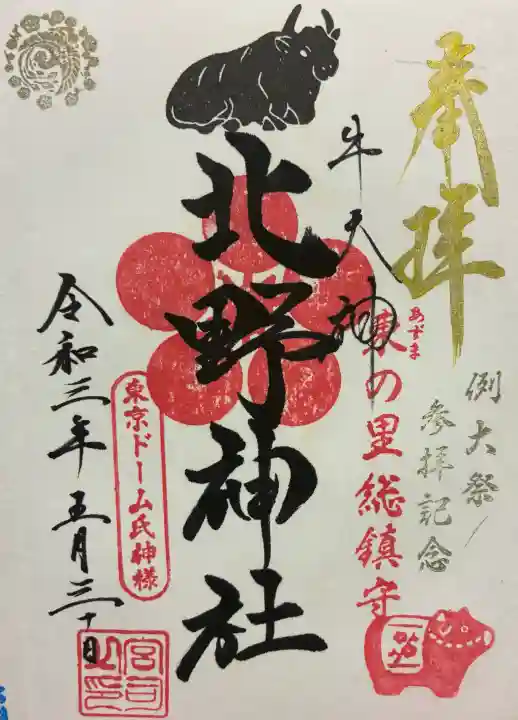 奉拝
例大祭
参拝記念
牛天神
あずま
東の里総鎮守
北野神社
東京ドーム氏神様
令和三年五月三十日
宮司之印